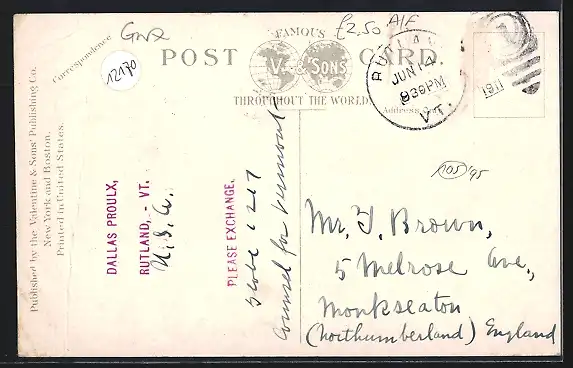 GWR
12170
£2,50 A/F
Correspondence
FAMOUS
POST CARD.
V. & SONS
THROUGHOUT THE WORLD
Address Only
RUTLAND
JUN 14
8 30 PM
VT.
1911
Published by the Valentine & Sons' Publishing Co.
New York and Boston.
Printed in United States.
DALLAS PROULX,
RUTLAND, - VT.
U.S.A.
PLEASE EXCHANGE.
Globe 1267
Counsel for Vermont
105/95
Mr. J. Brown,
5 Melrose Ave.,
Monkseaton
(Northumberland) England